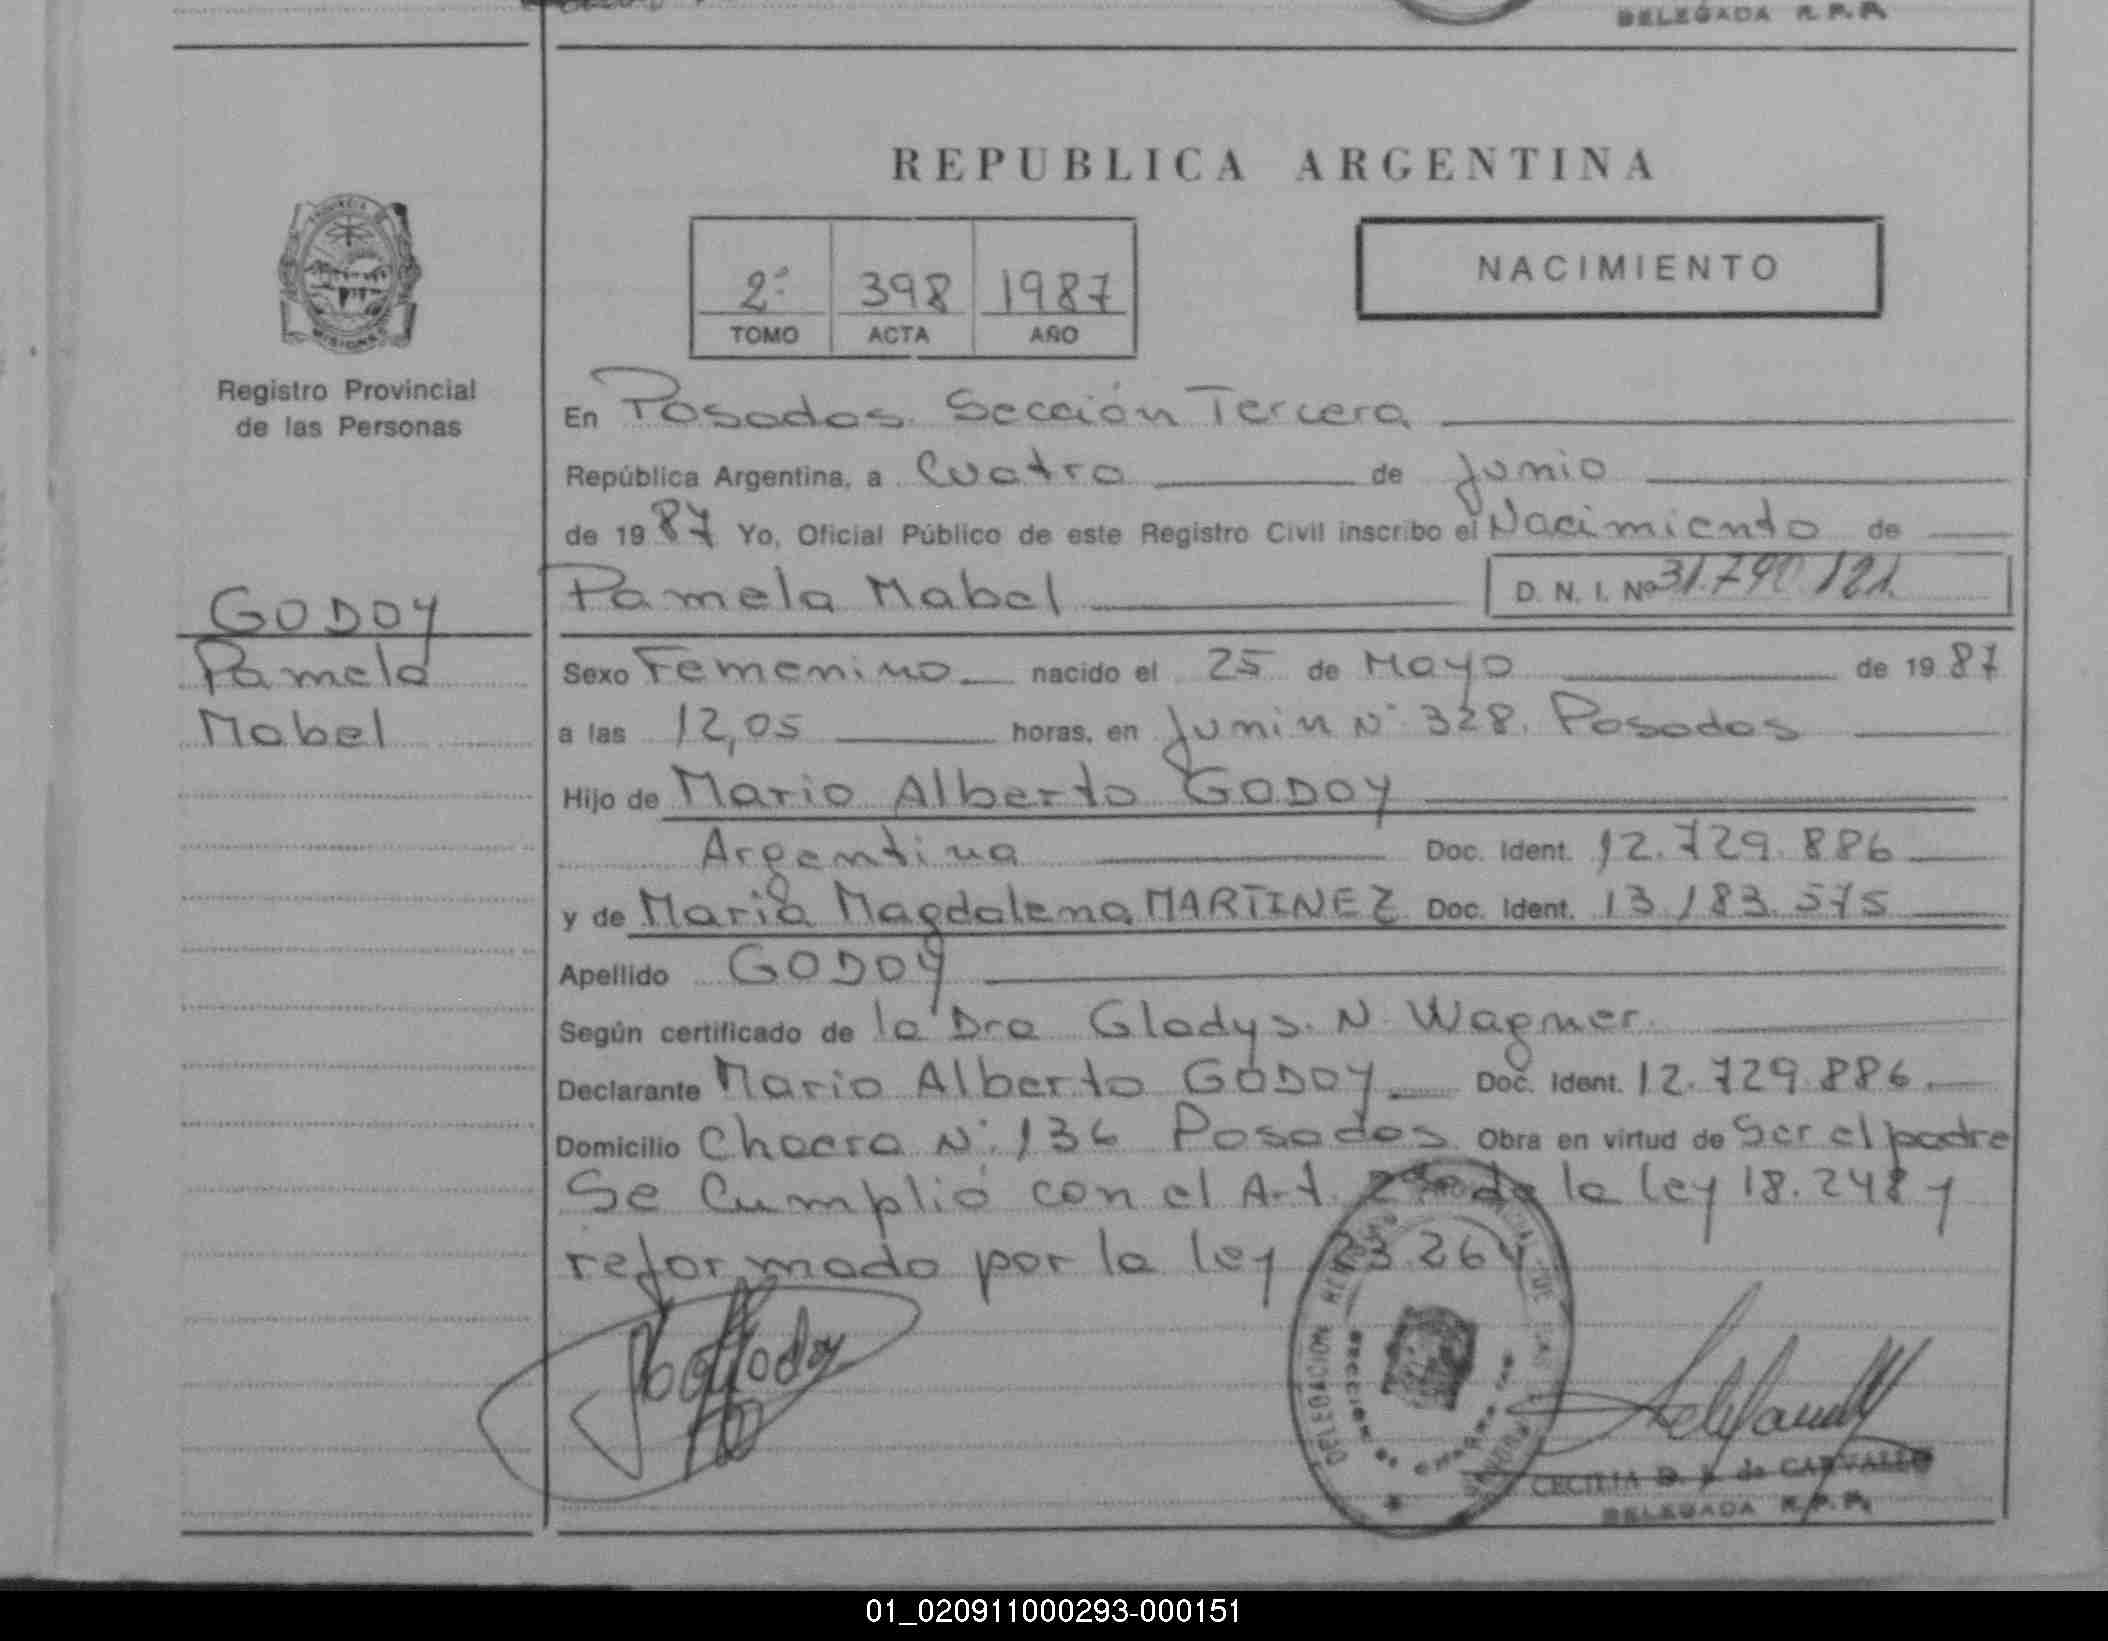 DELEGADA R. P. P.
REPUBLICA ARGENTINA
2º 398 1987
TOMO ACTA AÑO
NACIMIENTO
PROVINCIA DE MISIONES
Registro Provincial
de las Personas
En Posadas. Sección Tercera
República Argentina, a Cuatro de Junio
de 1987 Yo, Oficial Público de este Registro Civil inscribo el Nacimiento de
Pamela Mabel D. N. I. Nº 31.790.121.
GODOY
Pamela
Mabel
Sexo Femenino nacido el 25 de Mayo de 1987
a las 12,05 horas, en Junin Nº 328. Posadas
Hijo de Mario Alberto GODOY
Argentina Doc. Ident. 12.729.886
y de Maria Magdalena MARTINEZ Doc. Ident. 13.183.575
Apellido GODOY
Según certificado de la Dra Gladys. N. Wagner.
Declarante Mario Alberto GODOY Doc. Ident. 12.729.886.
Domicilio Chacra Nº 136 Posadas Obra en virtud de Ser el padre
Se Cumplió con el Art. de la ley 18.248 y
reformado por la ley 23.264
Godoy
DELEGACION REGISTRO PROVINCIAL DE LAS PERSONAS
CECILIA D. de CARVALLO
DELEGADA R. P. P.
01_020911000293-000151